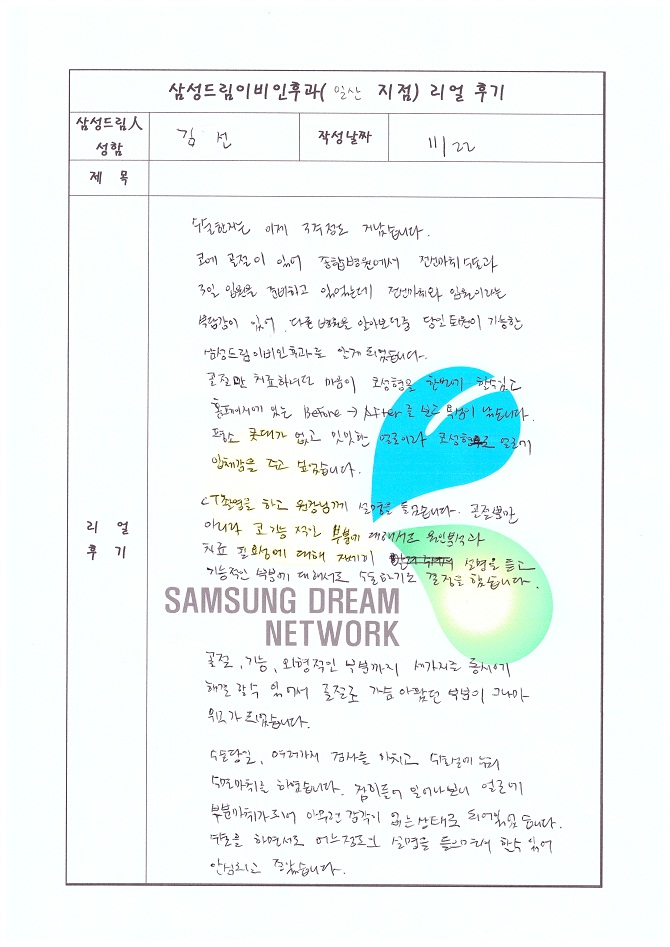 삼성드림이비인후과( 일산 지점) 리얼 후기
삼성드림人 성함
김 선
작성날짜
11/22
제 목
리 얼 후 기
수술한지는 이제 국주정도 지났습니다.
코에 골절이 있어 종합병원에서 전신마취 수술과
3일 입원을 준비하고 있었는데 전신마취와 입원이라는
부담감이 있어, 다른 병원을 알아보던중 당일 퇴원이 가능한
삼성드림이비인후과로 알게 되었습니다.
골절만 치료하려던 마음이 코성형을 한번에 하고싶고
홈페이지에 있는 Before → After 를 보고 욕심이 났습니다.
평소 콧대가 없고 밋밋한 얼굴이라 코성형으로 얼굴에
입체감을 주고 싶었습니다.
CT촬영을 하고 원장님께 설명을 들었습니다. 골절뿐만
아니라 코기능 적인 부분에 대해서도 원인분석과
치료 필요성에 대해 자세히 설명을 듣고
기능적인 부분에 대해서도 수술하기로 결정을 했습니다.
SAMSUNG DREAM
NETWORK
골절, 기능, 외형적인 부분까지 세가지를 동시에
해결 할수 있어서 골절로 가슴 아팠던 부분이 그나마
위로가 되었습니다.
수술당일, 여러가지 검사를 마치고 수술실에 누워
수면마취를 하였습니다. 잠휘들어 일어나보니 얼굴에
부분마취가 되어 아무런 감각이 없는 상태로 되어있었습니다.
수술을 하면서도 어느정도 설명을 들으면서 할수 있어
안심되고 좋았습니다.